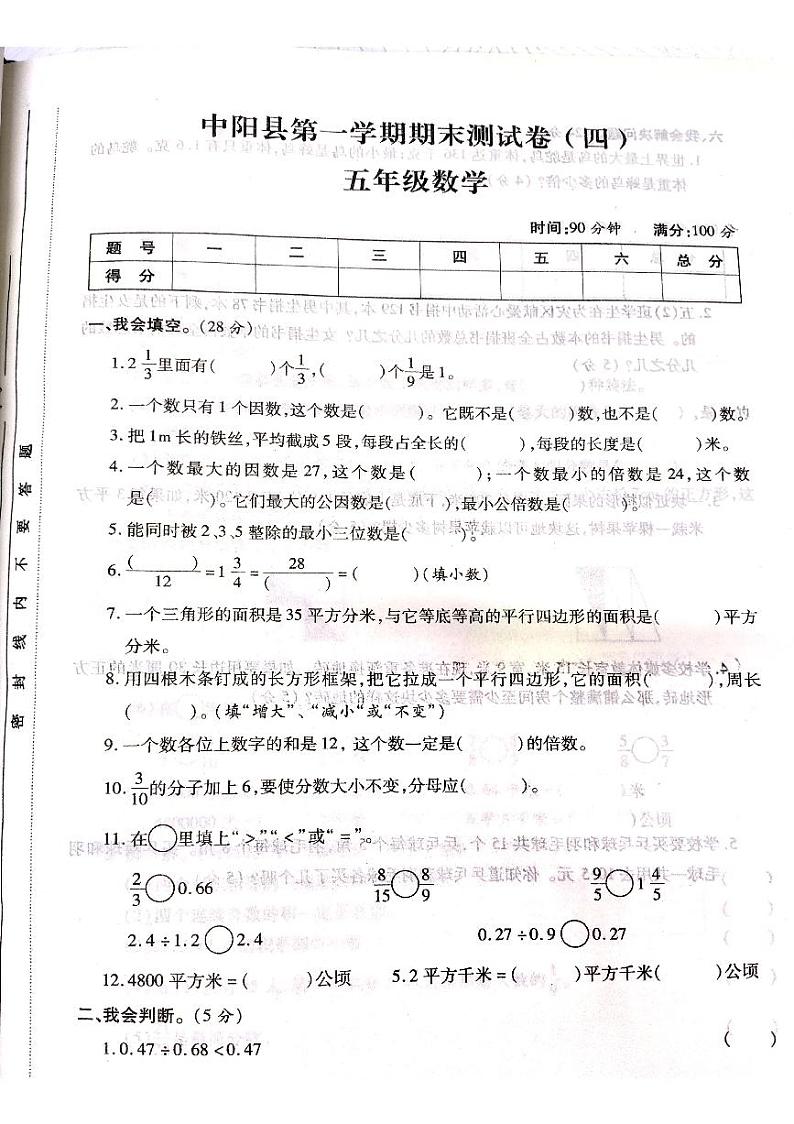 中阳县第一学期期末测试卷(四)
五年级数学
时间:90 分钟 满分:100 分
题 号 一 二 三 四 五 六 总 分
得 分
一、我会填空。(28 分)
1.2 1/3 里面有( )个 1/3 ,( )个 1/9 是 1。
2. 一个数只有 1 个因数,这个数是( )。它既不是( )数,也不是( )数。
3. 把 1m 长的铁丝,平均截成 5 段,每段占全长的( ),每段的长度是( )米。
4. 一个数最大的因数是 27,这个数是( );一个数最小的倍数是 24,这个数
是( )。它们最大的公因数是( ),最小公倍数是( )。
5. 能同时被 2、3、5 整除的最小三位数是( )。
6. ( )/12 = 1 3/4 = 28/( ) = ( )(填小数)
7. 一个三角形的面积是 35 平方分米,与它等底等高的平行四边形的面积是( )平方
分米。
8. 用四根木条钉成的长方形框架,把它拉成一个平行四边形,它的面积( ),周长
( )。(填“增大”、“减小“或“不变”)
9. 一个数各位上数字的和是 12, 这个数一定是( )的倍数。
10. 3/10 的分子加上 6,要使分数大小不变,分母应( )。
11. 在○里填上“>”“<”或“=”。
2/3○0.66 8/15○8/9 9/5○1 4/5
2.4÷1.2○2.4 0.27÷0.9○0.27
12.4800 平方米=( )公顷 5.2 平方千米=( )平方千米( )公顷
二、我会判断。(5 分)
1.0.47÷0.68<0.47 ( )
密 封 线 内 不 要 答 题